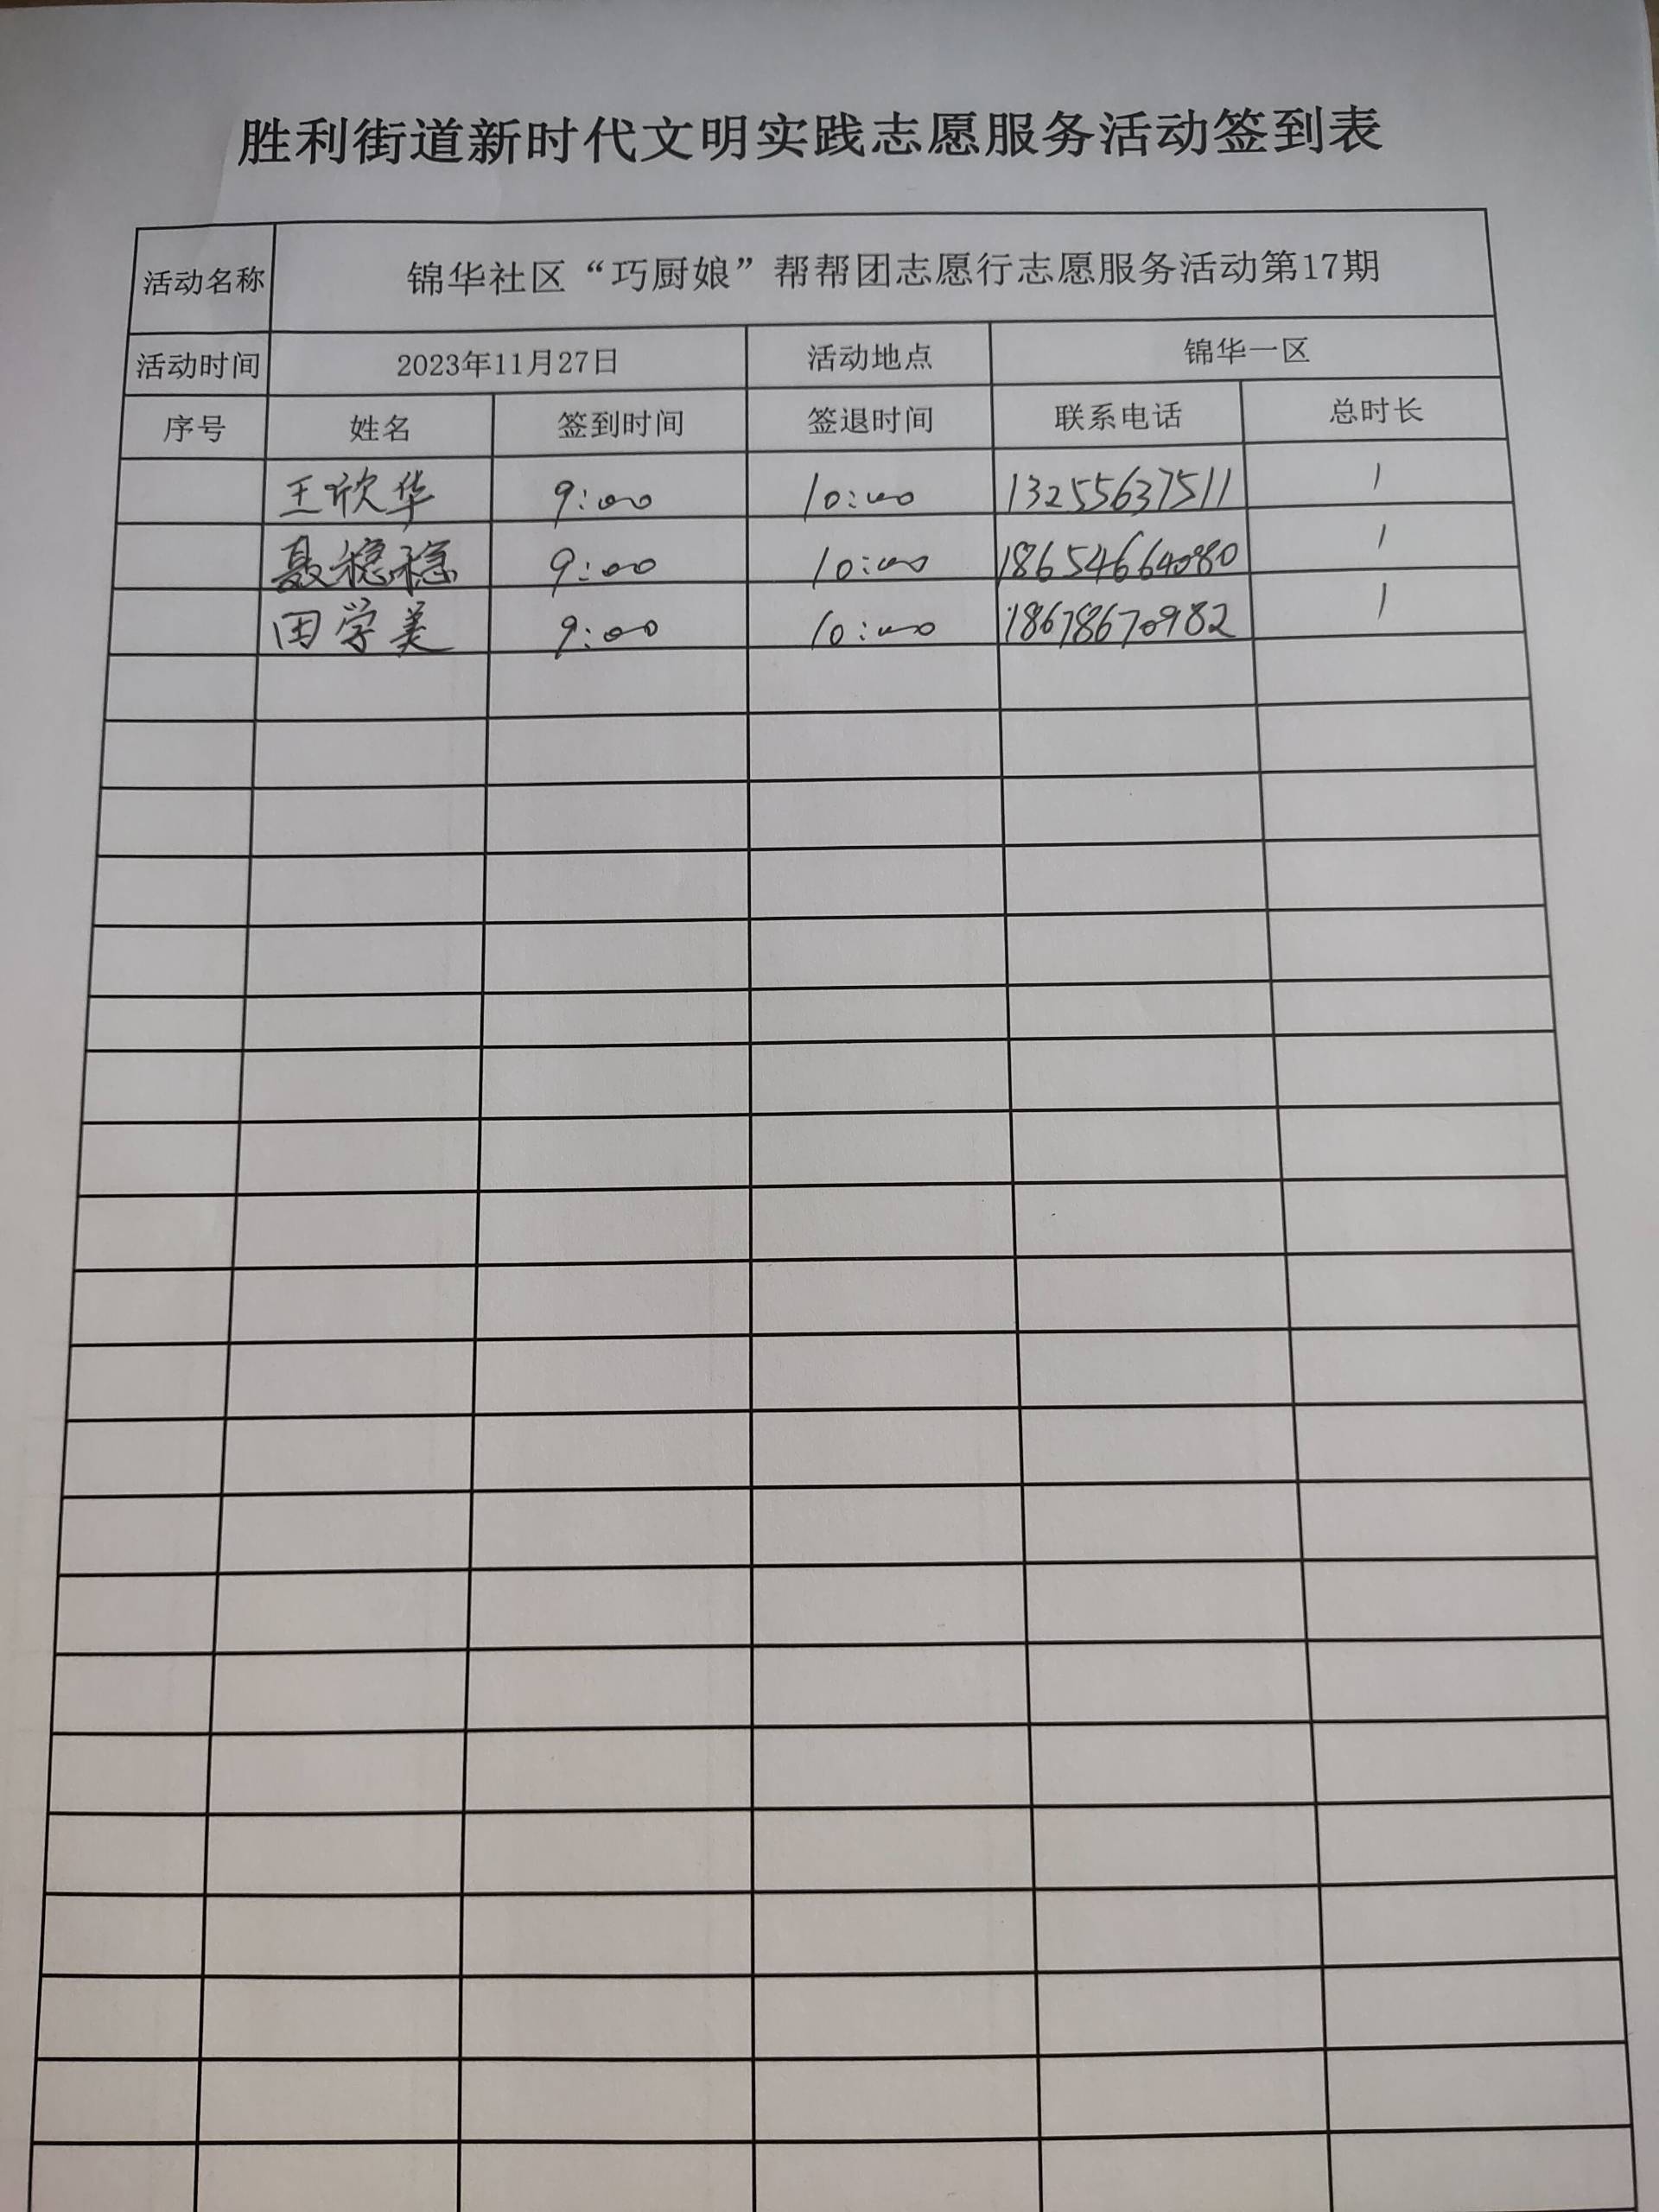 胜利街道新时代文明实践志愿服务活动签到表
活动名称 锦华社区“巧厨娘”帮帮团志愿行志愿服务活动第17期
活动时间 2023年11月27日 活动地点 锦华一区
序号 姓名 签到时间 签退时间 联系电话 总时长
王欣华 9:00 10:00 13255637511 1
聂稳稳 9:00 10:00 18654664080 1
田学美 9:00 10:00 18678670982 1